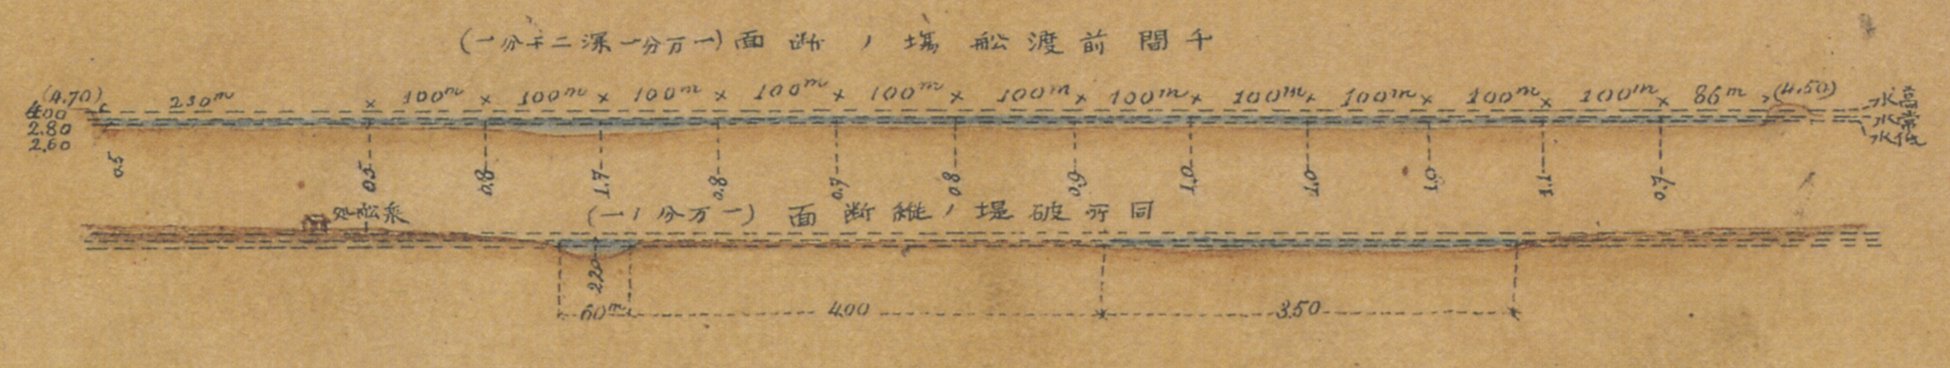 千間前渡舩塲ノ断面(一万分一深二千分一)
(4.70) 230m 100m 100m 100m 100m 100m 100m 100m 100m 100m 100m 100m 86m (4.50)
4.00
2.80
2.60
高水
常水
低水
0.5 0.5 0.8 1.7 0.8 0.7 0.8 0.9 1.0 1.0 1.0 1.1 0.7
同所破堤ノ縦断面(一万分ノ一)
乗舩処
2.20
60m 400 350